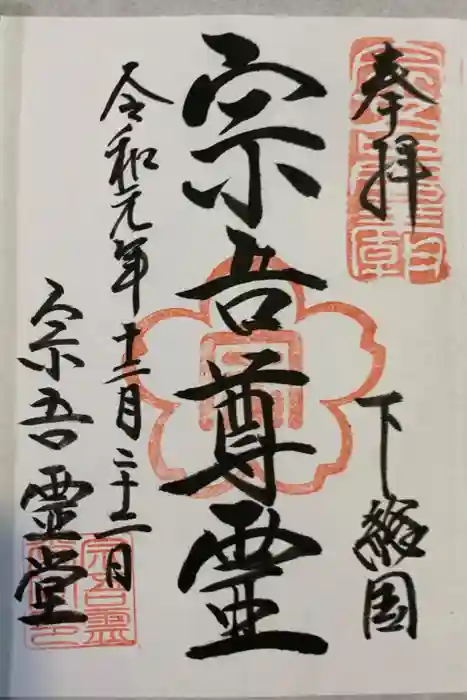 奉拝
下総国
宗吾尊霊
令和元年十二月二十二日
宗吾霊堂